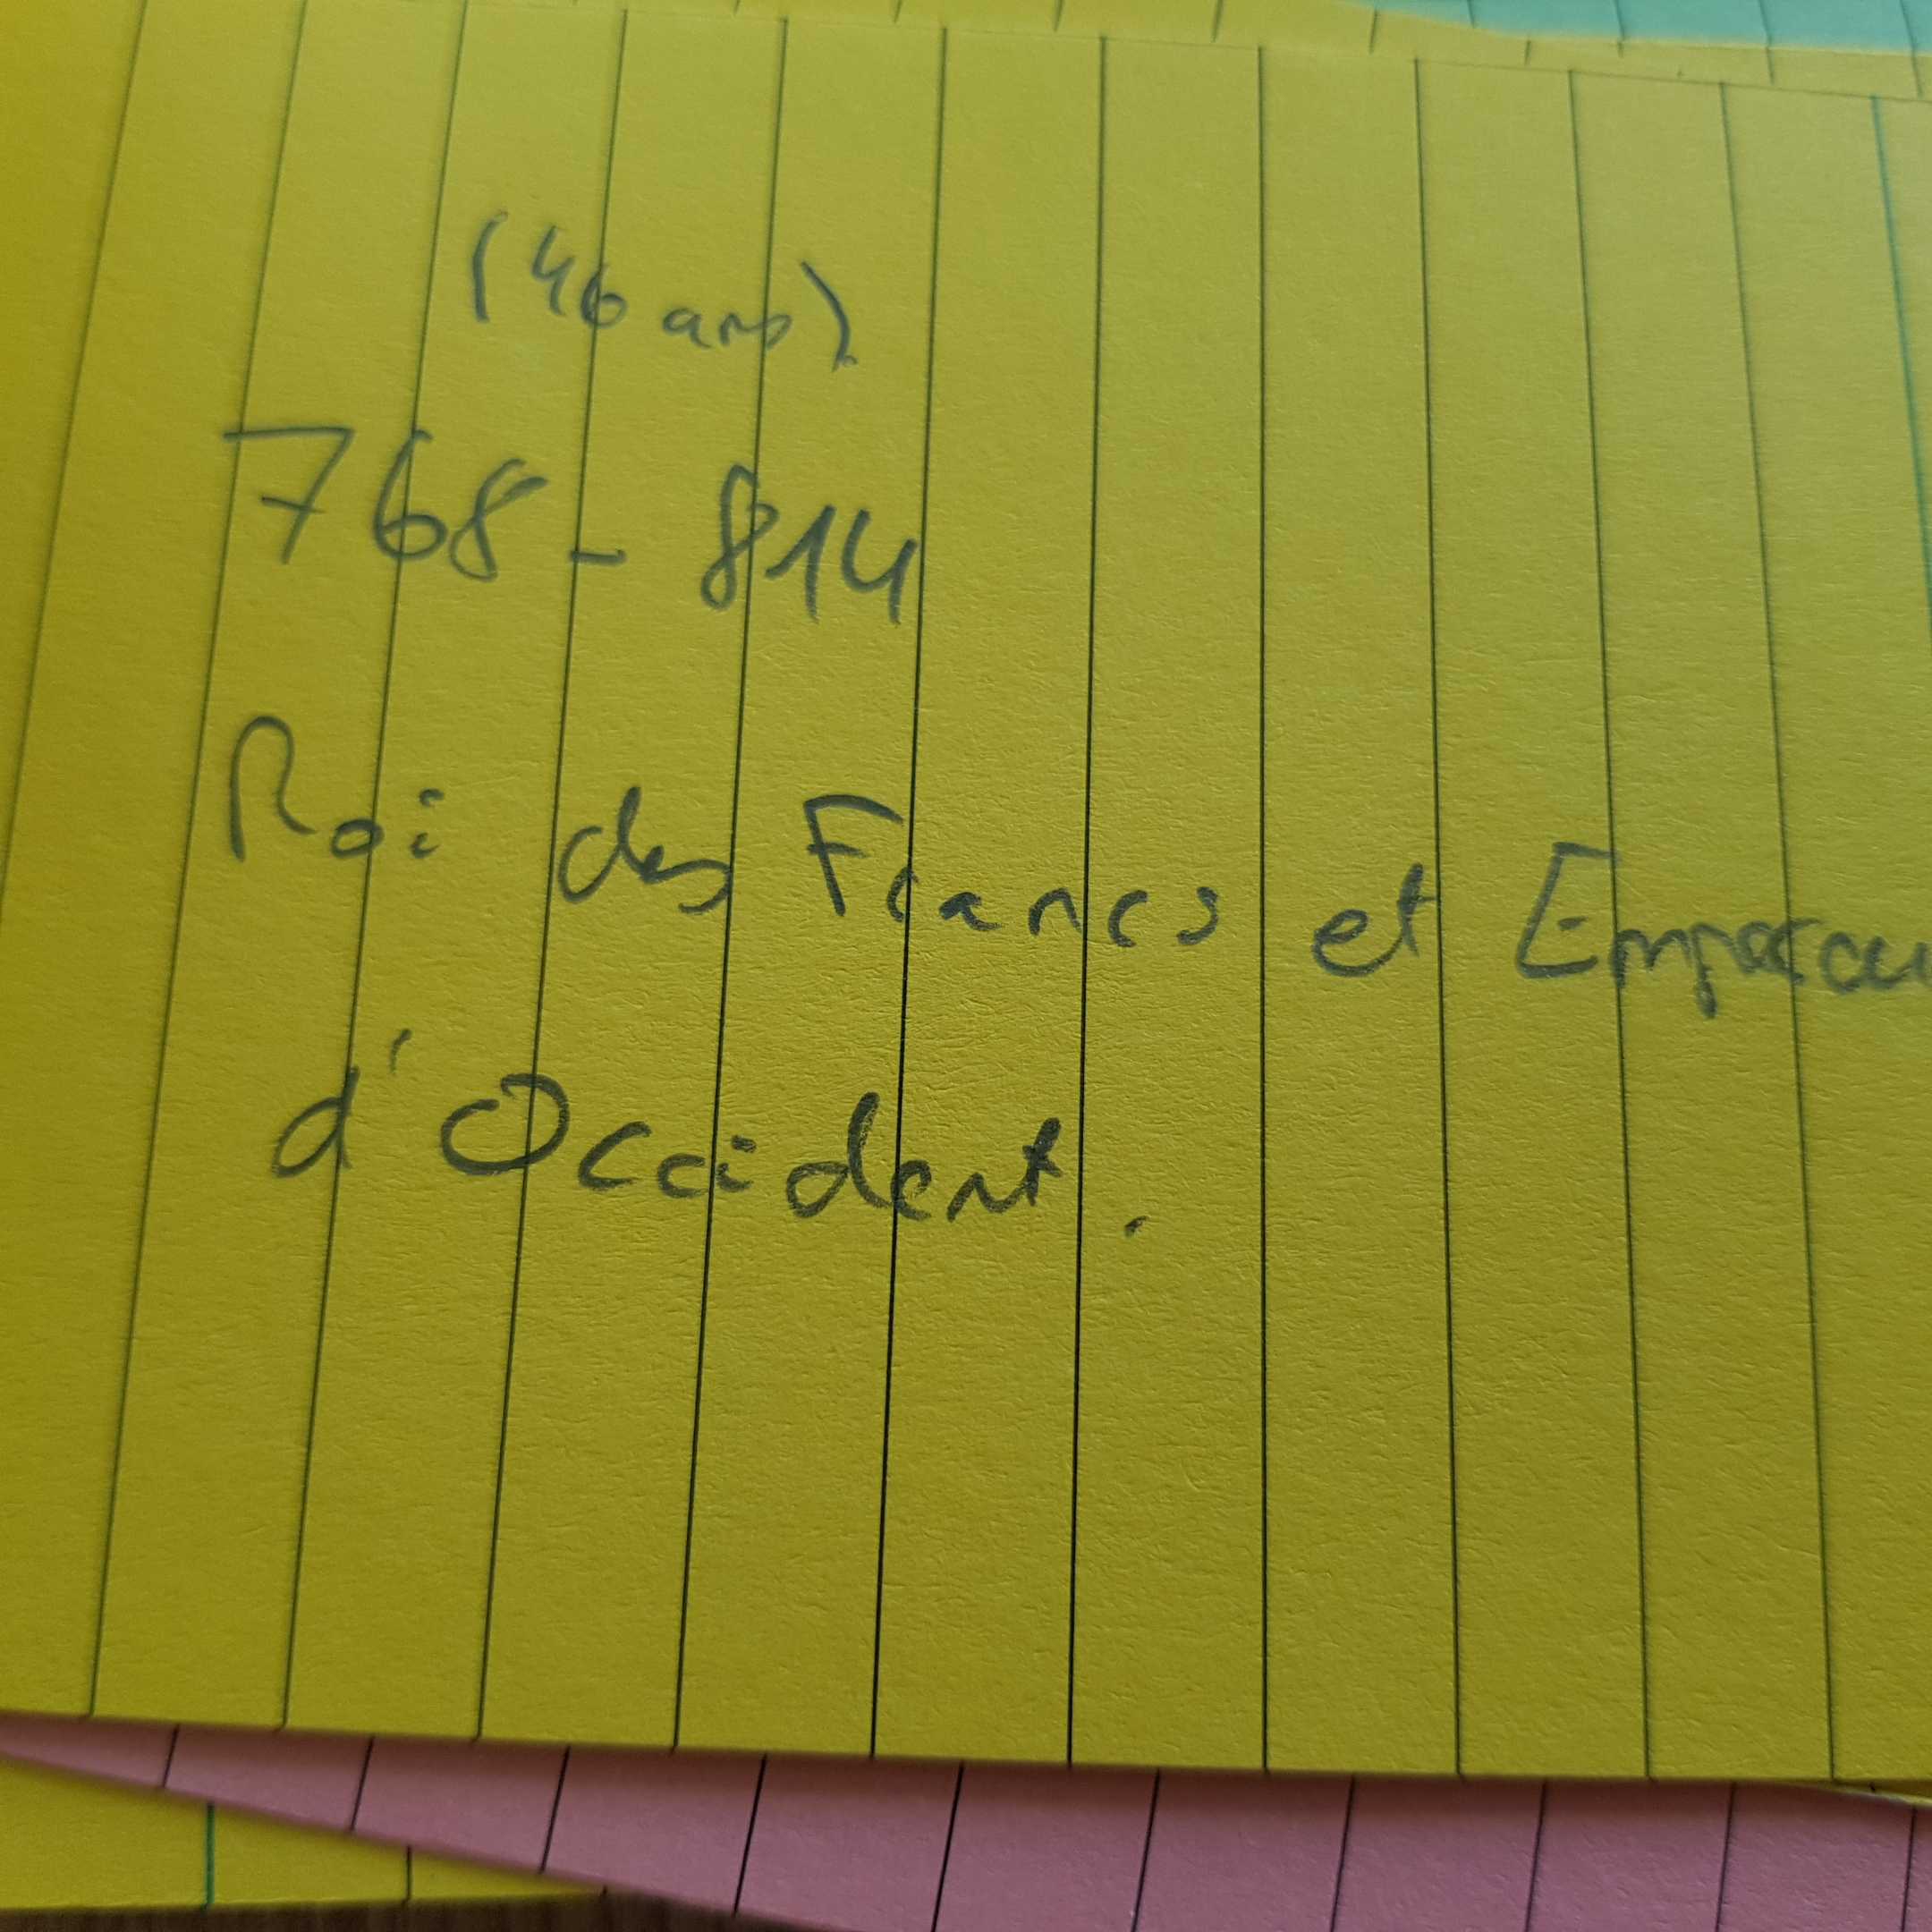 (46 ans)
768 - 814
Roi des Francs et Empereu
d'Occident.